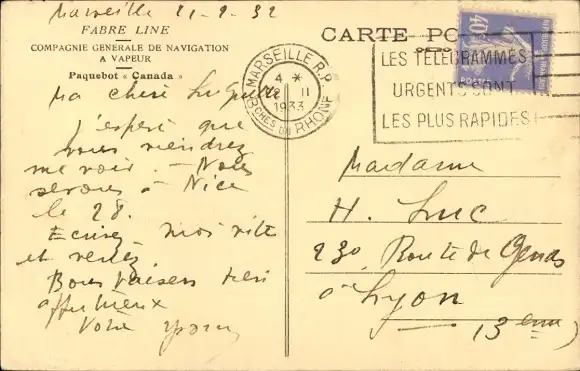 Marseille 21-2-32
FABRE LINE
COMPAGNIE GENERALE DE NAVIGATION
A VAPEUR
Paquebot « Canada »
Ma chère
J'espère que
vous viendrez
me voir. – Nous
serons à Nice
le 28.
Ecrivez moi vite
et venez.
Bons baisers très
affectueux
Votre
CARTE PO
MARSEILLE R.P.
4 *
II
1933
BCHES DU RHONE
LES TÉLÉGRAMMES
URGENTS SONT
LES PLUS RAPIDES!
40c
POSTES
Madame
H. Luc
230, Route de Genas
à Lyon
(3 ème)